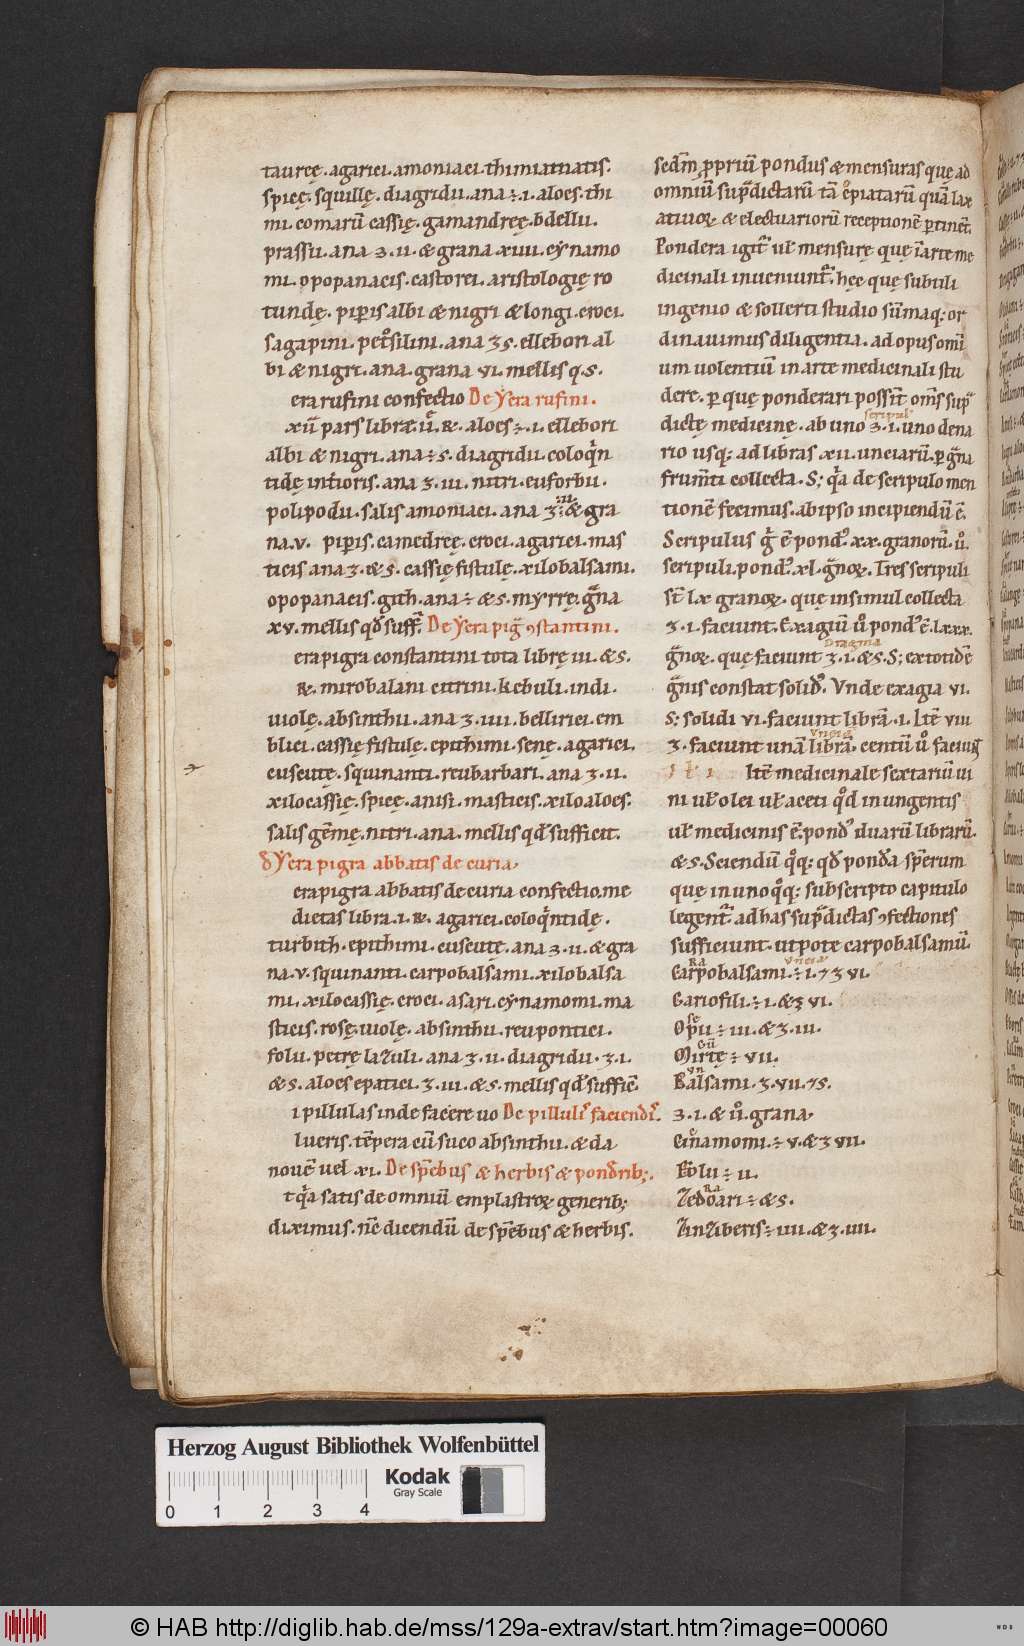 taureę. agarici. amoniaci. thimiamatis.
spicę. squillę. diagridii. ana ÷. i. aloes. thi
mi. comarū cassię. gamandreę. bdellii.
prassii. ana ʒ. ii. & grana xiiii. cynamo
mi. opopanacis. castorei. aristologię ro
tundę. piꝑis albi & nigri & longi. croci.
sagapini. petͦsilini. ana ʒ s. ellebori al
bi & nigri. ana. grana vi. mellis q. s.
era rufini confectio De Yera rufini.
xii pars librae. ÷. ℞. aloes ÷. i. ellebori
albi & nigri. ana ÷ s. diagridii. coloqͥn
tidę inťioris. ana ʒ. iii. nitri. euforbii.
polipodii. salis amoniaci. ana ʒ iii & gra
na. v. piꝑis. camedreę. croci. agarici. mas
ticis ana ʒ. & s. cassię fistulę. xilobalsami.
opopanacis. gith. ana ÷ & s. myrrę. gͣna
xv. mellis qđ suff. De Yera pig̃ ꝯstantini.
era pigra constantini tota librę iii. & s.
℞. mirobalani citrini. kebuli. indi.
uiolę. absinthii. ana ʒ. iiii. bellirici. em
blici. cassię fistulę. epithimi. senę. agarici.
cuscutę. squinanti. reubarbari. ana ʒ. ii.
xilocassię. spicę. anisi. masticis. xiloaloes.
salis gēmę. nitri. ana. mellis qđ sufficit.
đ Yera pigra abbatis de curia.
era pigra abbatis de curia confectio. me
dietas libra. i. ℞. agarici. coloqͥntidę.
turbith. epithimi. cuscutę. ana ʒ. ii. & gra
na. v. squinanti. carpobalsami. xilobalsa
mi. xilocassię. croci. asari. cynamomi. ma
sticis. rosę. uiolę. absinthii. reupontici.
folii. petrę lazuli. ana ʒ. ii. diagridii. ʒ. i.
& s. aloes epatici. ʒ. iii. & s. mellis qđ suffic̄.
i pillulas inde facere uo De pillulis faciendis.
lueris. tēpera cū suco absinthii. & da
nouē uel xi. De spēbus & herbis & ponđrib;.
tqͣ satis de omniū emplastroꝝ generib;
diximus. nc̄ dicendū de spēbus & herbis.
sedm ꝓpriū pondus & mensuras que ad
omniū supͣdictarū tā epiatarū quā lax
atiuoꝝ & electuariorū receptionē ꝑtinēt.
Pondera igitͬ uł mensurę quę ī arte me
dicinali inueniuntͬ. hęc quę subtili
ingenio & sollerti studio sūmaq; or
dinauimus diligentia. ad opus omī
um uolentiū in arte medicinali stu
dere. ꝑ quę ponderari possīt om̄s supͣ
scripul'
dictę medicinę. ab uno ʒ. i. uno dena
rio usq; ad libras xii. unciarū. ꝑ gͣna
frumti collecta. S; qͣ de scripulo men
tionē fecimus. ab ipso incipiendū ē.
Scripulus gͦ ē pondͦ. xx. granorū. uͦ.
scripuli. pondͦ. xl. gͣnoꝝ. Tres scripuli
sī lx granoꝝ. quę insimul collecta
ʒ. i. faciunt. Exagiū uͦ pondͦ ē. lxxx.
Dragma
gͣnoꝝ. quę faciunt ʒ. i. & s. S; ex totidē
gͣnis constat solidͦ. Vnde exagia vi.
S; solidi vi. faciunt librā. i. Itē viii
Vncia
ʒ. faciunt unā librā. centū uͦ faciunt
Itē medicinale sextariū ui
ni uł olei uł aceti qͦd in ungentis
uł medicinis ē. pondͦ duarū librarū.
& s. Sciendū qͦq; qđ pondͣa spērum
quę in uno qͦq; subscripto capitulo
legentͬ. ad has supͣdictas ꝯfectiones
sufficiunt. utpote carpobalsamū.
RA Vncia
Carpobalsami. ÷. i. 7 ʒ vi.
Gariofili. ÷. i. & ʒ vi.
se
Opii ÷. iii. & ʒ. iii.
Gū
Mirtę ÷. vii.
vn
Balsami. ʒ. vii. 7 s.
ʒ. i. & uͦ. grana.
Cinamomi. ÷. v. & ʒ vii.
Folii ÷. ii.
Ra
Zedoari ÷. & s.
Zinziberis ÷. iiii. & ʒ. iiii.
Herzog August Bibliothek Wolfenbüttel
Kodak
Gray Scale
0 1 2 3 4
© HAB http://diglib.hab.de/mss/129a-extrav/start.htm?image=00060